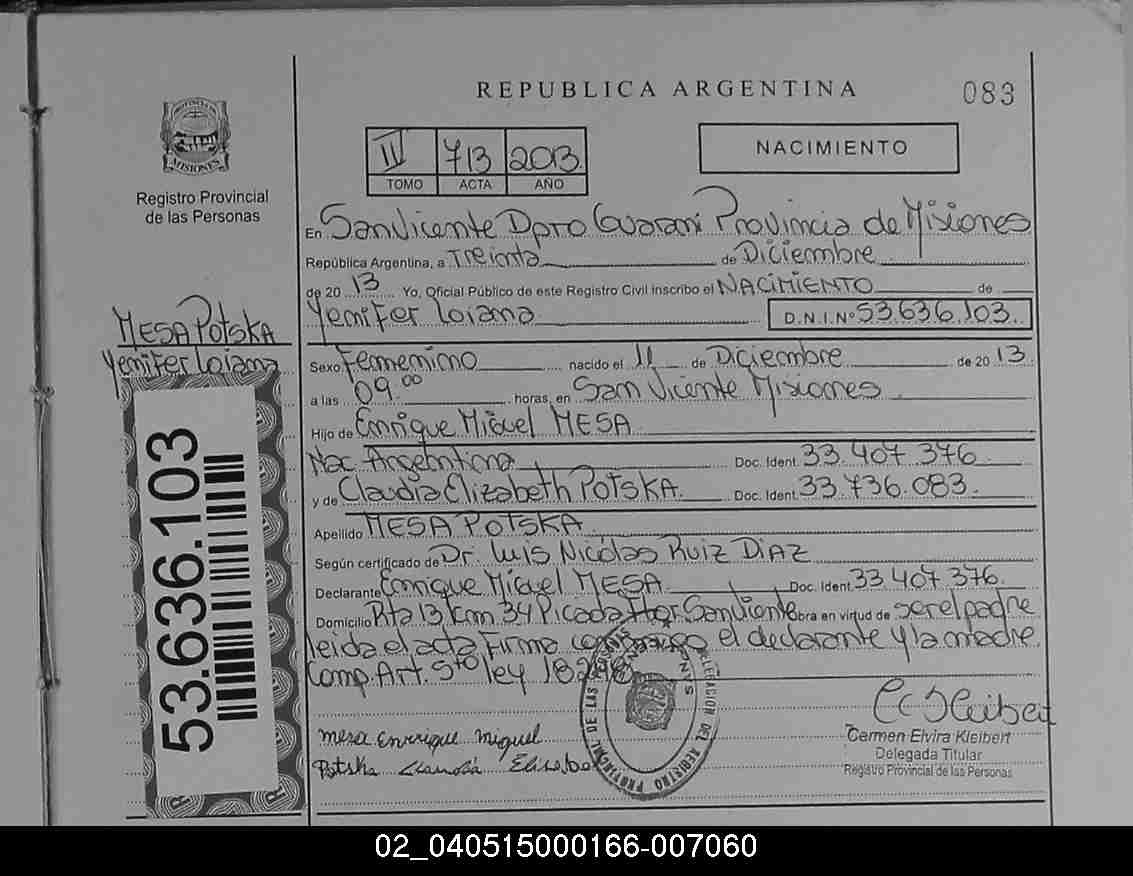 REPUBLICA ARGENTINA
083
PROVINCIA DE
MISIONES
Registro Provincial
de las Personas
II 713 2013
TOMO ACTA AÑO
NACIMIENTO
En San Vicente Dpto Guarani Provincia de Misiones
República Argentina, a Treinta de Diciembre
de 2013 Yo, Oficial Público de este Registro Civil inscribo el NACIMIENTO de
Yenifer Loiana D.N.I.Nº 53.636.103
MESA POTSKA
Yenifer Loiana
Sexo Femenino nacido el 11 de Diciembre de 2013
a las 09.00 horas, en San Vicente Misiones
Hijo de Enrique Miguel MESA
Nac. Argentina Doc. Ident. 33.407.376
y de Claudia Elizabeth POTSKA Doc. Ident. 33.736.083
Apellido MESA POTSKA
Según certificado de Dr. Luis Nicolas Ruiz DIAZ
Declarante Enrique Miguel MESA Doc. Ident. 33.407.376
Domicilio Rta 13 Km 34 Picada Flor San Vicente obra en virtud de ser el padre
leida el acta Firma conmigo el declarante y la madre.
Comp. Art. 5to ley 18248
53.636.103
mesa enrrique miguel
Potska Claudia Elisabe
DELEGACION DEL REGISTRO PROVINCIAL DE LAS
Carmen Elvira Kleibert
Delegada Titular
Registro Provincial de las Personas
02_040515000166-007060